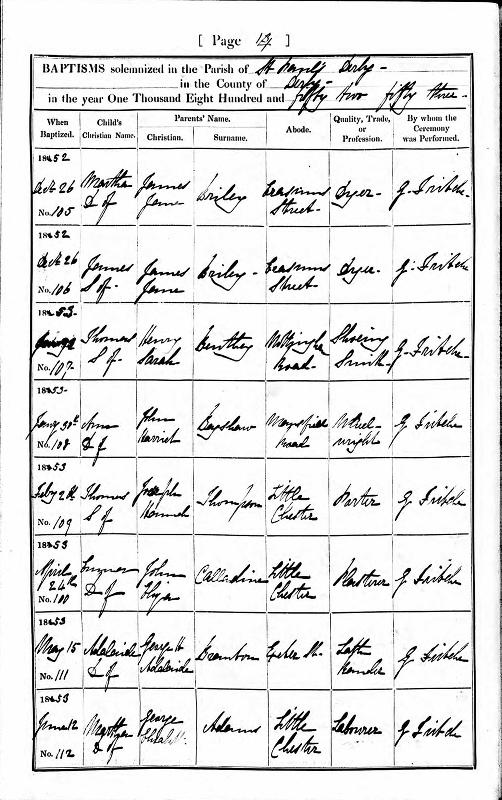 [ Page 13 ]
BAPTISMS solemnized in the Parish of St Paul's Derby -
in the County of Derby -
in the year One Thousand Eight Hundred and fifty two fifty three -
When Baptized. Child's Christian Name. Parents' Name. Christian. Surname. Abode. Quality, Trade, or Profession. By whom the Ceremony was Performed.
1852
Oct. 26 Martha James Briley Erasmus Dyer - G. Fritche
No. 105 D of Jane Street -
1852
Oct. 26 James James Briley - Erasmus Dyer - G. Fritche
No. 106 S of Jane Street -
1853
Thomas Henry Nottingham Shoeing G. Fritche
No. 107 S of Sarah Road - Smith
1853
Jany 30th Ann John Bagshaw Mansfield Wheel G Fritche
No. 108 D of Harriet Road wright
1853
Feby 2th Thomas Joseph Thompson Little Porter G Fritche
No. 109 S of Hannah Chester
1853
April John Calladine Little Plasterer G Fritche
24th D of Chester
No. 100
1853
May 15 Adelaide George H Exeter St. G Fritche
No. 111 D of Adelaide
1853
June 12 Martha George Adams Little Labourer G Fritche
No. 112 D of Elizabeth Chester